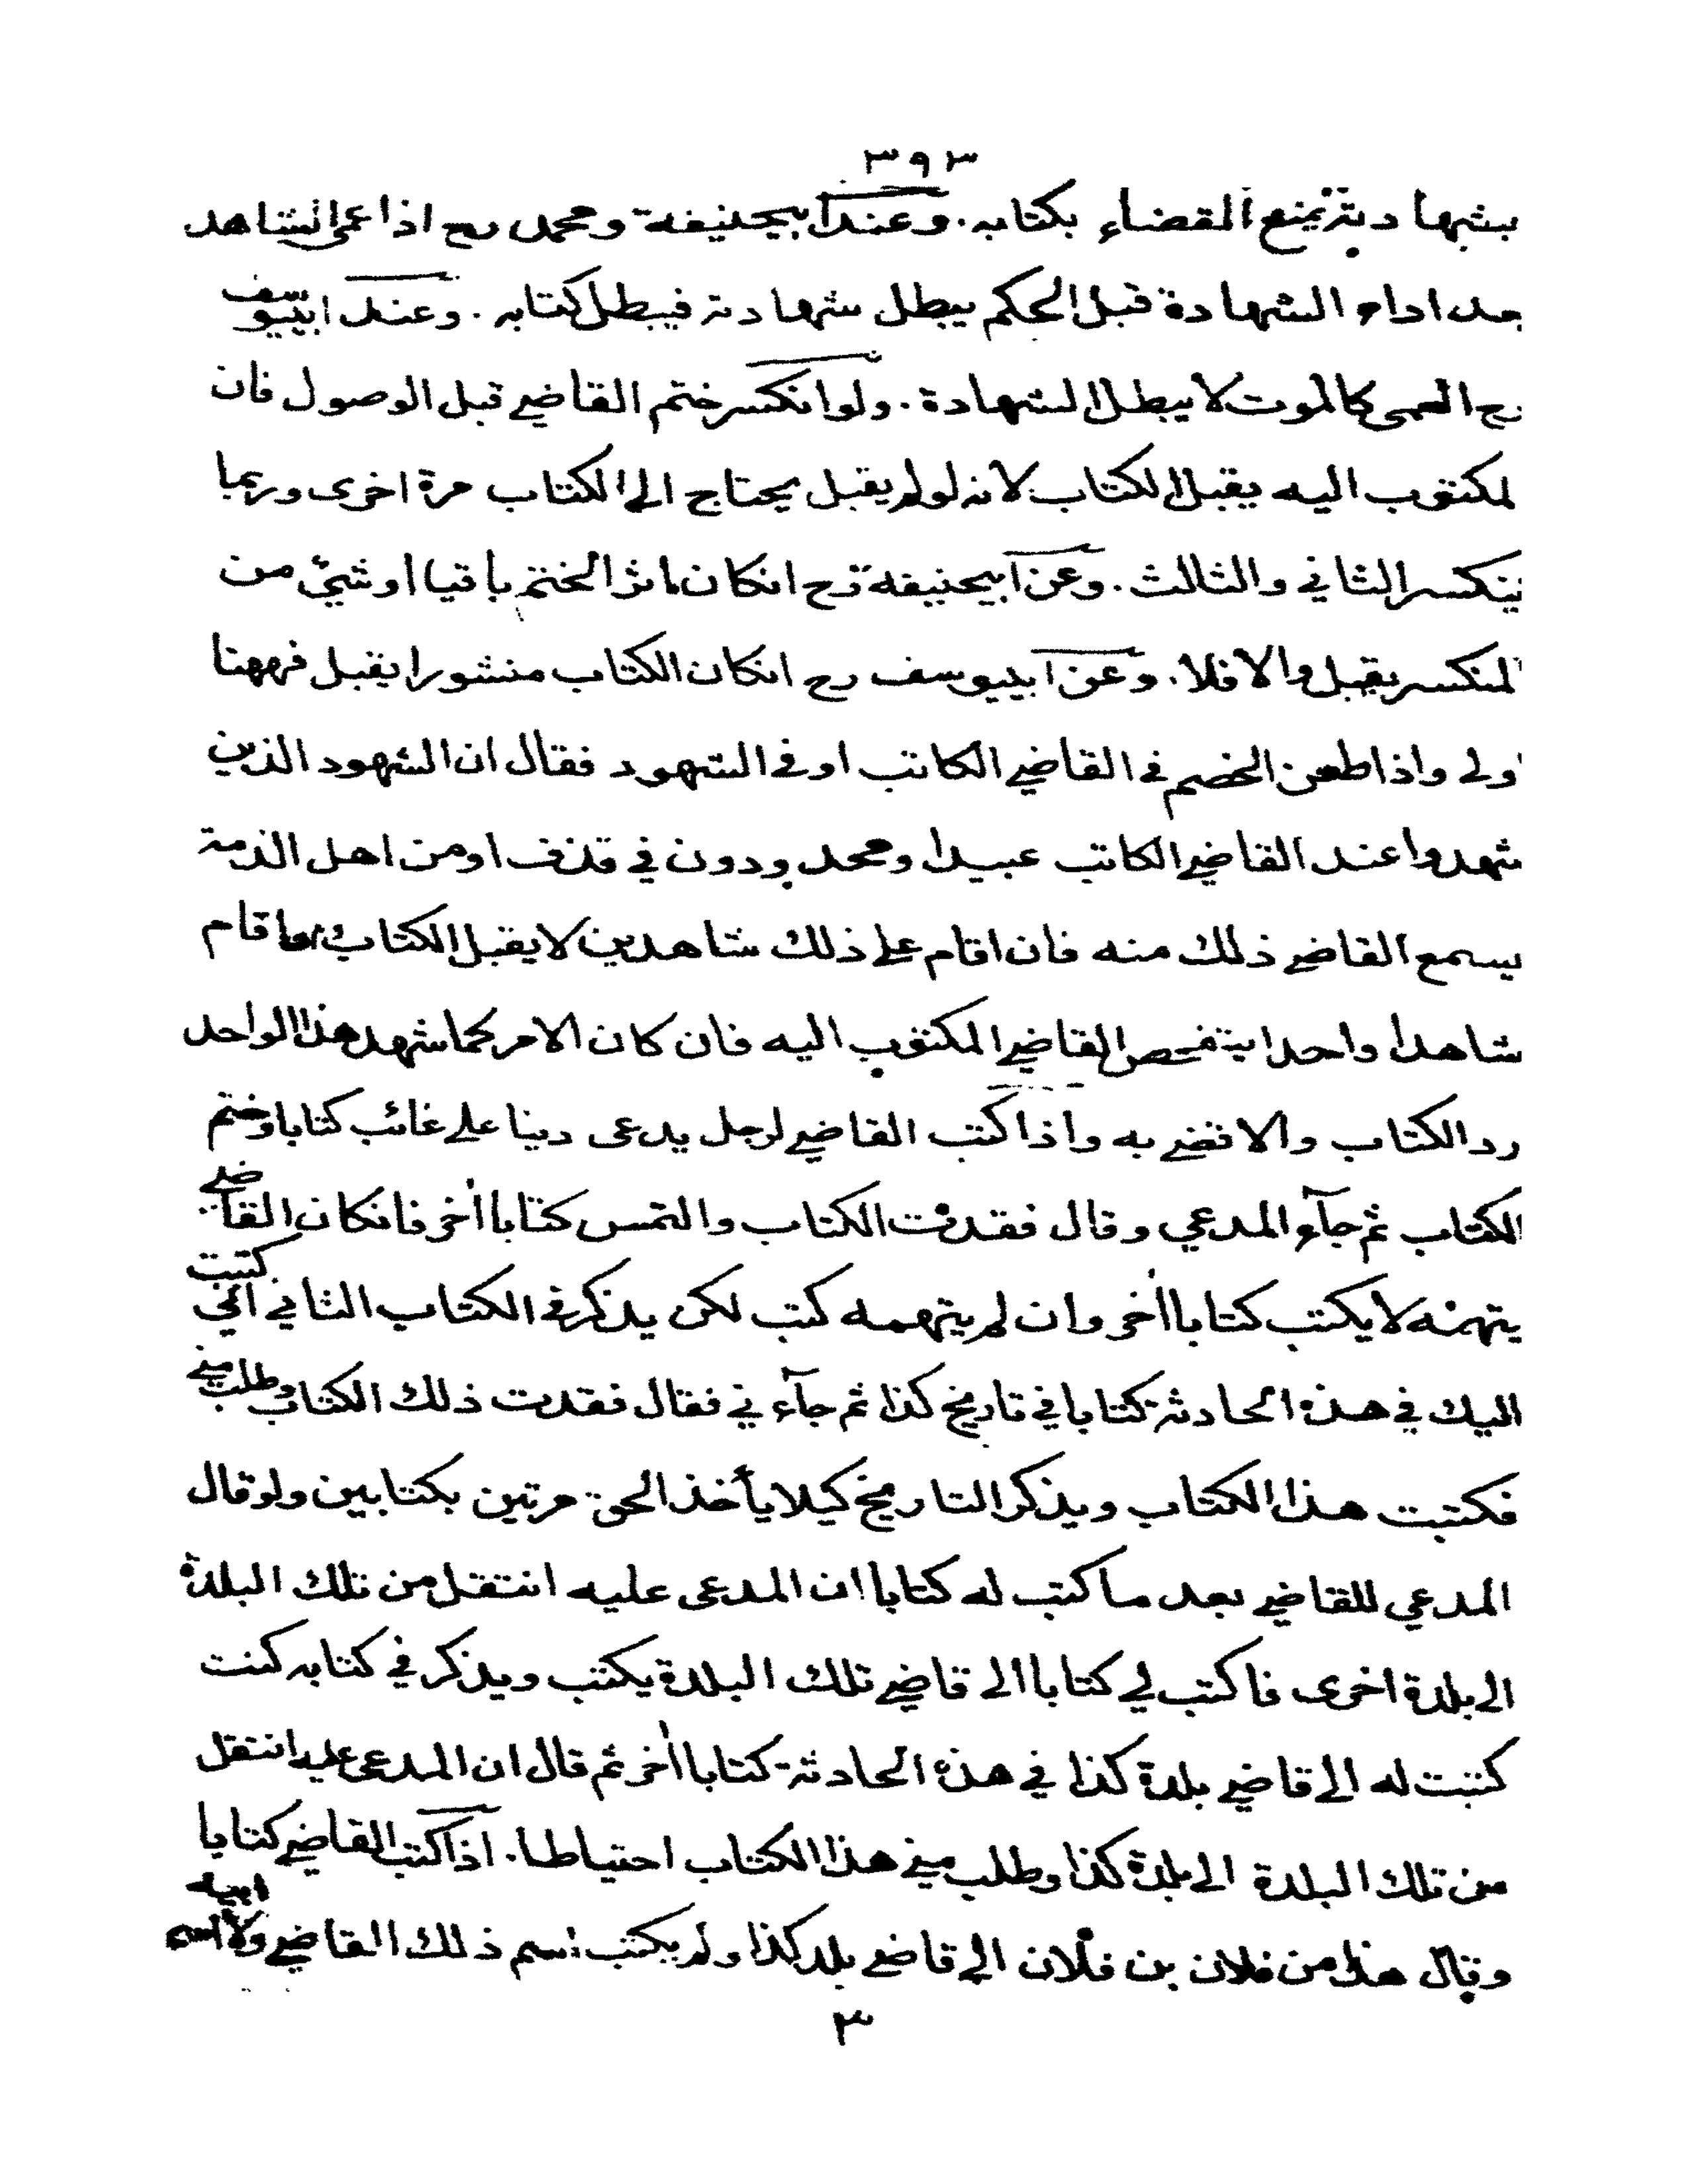 ٣٩٣
بشهادته يمنع القضاء بكتابه. وعند ابيحنيفة ومحمد رح اذا عمى الشاهد
بعد اداء الشهادة قبل الحكم يبطل شهادته فيبطل كتابه. وعند ابييوسف
رح العمى كالموت لا يبطل الشهادة. ولو انكسر ختم القاضي قبل الوصول فان
لمكتوب اليه يقبل الكتاب لانه لو لم يقبل يحتاج الى الكتاب مرة اخرى وربما
ينكسر الثاني والثالث. وعن ابيحنيفة رح انكان اثر الختم باقيا او شيء من
المنكسر يقبل والا فلا. وعن ابييوسف رح انكان الكتاب منشورا يقبل فههنا
اولى واذا طعن الخصم في القاضي الكاتب او في الشهود فقال ان الشهود الذين
شهدوا عند القاضي الكاتب عبيد او محدودون في قذف او من اهل الذمة
يسمع القاضي ذلك منه فان اقام على ذلك شاهدين لا يقبل الكتاب قام
شاهدا واحدا يتفحص القاضي المكتوب اليه فان كان الامر كما شهد هذا الواحد
رد الكتاب والا قضى به واذا كتب القاضي لرجل يدعى دينا على غائب كتابا وختم
الكتاب ثم جآء المدعي وقال فقدت الكتاب والتمس كتابا اٰخر فانكان القاضي
يتهمه لا يكتب كتابا اٰخر وان لم يتهمه كتب لكن يذكر في الكتاب الثاني اني كتبت
اليك في هذه الحادثة كتابا في تاريخ كذا ثم جآء ني فقال فقدت ذلك الكتاب وطلب مني
فكتبت هذا الكتاب ويذكر التاريخ كيلا يأخذ الحق مرتين بكتابين ولو قال
المدعي للقاضي بعد ما كتب له كتابا ان المدعى عليه انتقل من تلك البلدة
الى بلدة اخرى فاكتب لي كتابا الى قاضي تلك البلدة يكتب ويذكر في كتابه كنت
كتبت له الى قاضي بلدة كذا في هذه الحادثة كتابا اٰخر ثم قال ان المدعى عليه انتقل
من تلك البلدة الى بلدة كذا وطلب مني هذا الكتاب احتياطا. اذا كتب القاضي كتابا
وقال هذا من فلان بن فلان الى قاضي بلد كذا ولم يكتب اسم ذلك القاضي ولا اسم ابيه
٣